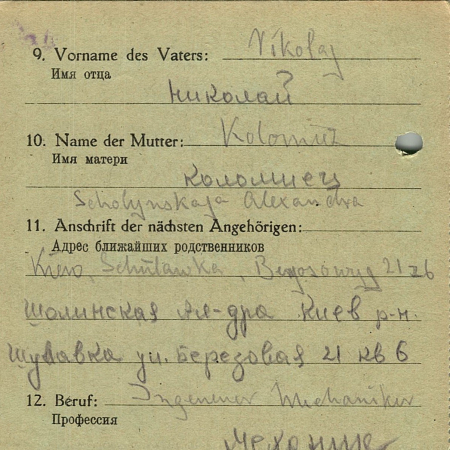 9. Vorname des Vaters: Nikolaj
Имя отца
Николай
10. Name der Mutter: Kolomiez
Имя матери
Коломиец
Scholynskaja Alexandra
11. Anschrift der nächsten Angehörigen:
Адрес ближайших родственников
Kiew, Schulawka, 21 z 6
Шолинская Ал-дра Киев р-н.
Шулавка ул. Березовая 21 кв 6
12. Beruf: Ingeneur Mechaniker
Профессия
Механик